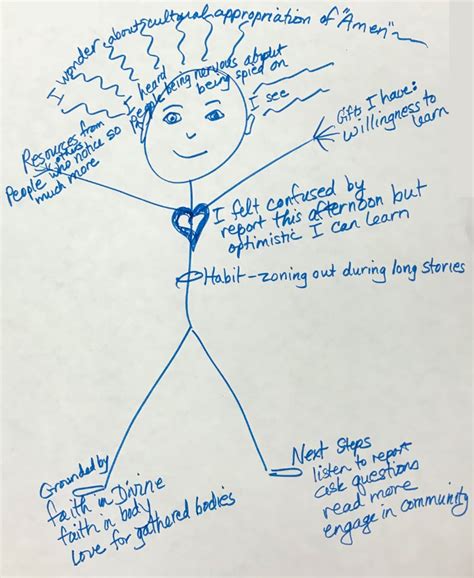 I wonder about cultural appropriation of "Amen"
I heard
People being nervous about
being spied on
I see
Gifts I have:
willingness to
learn
Resources from
others:
People who notice so
much more
I felt confused by
report this afternoon but
optimistic I can learn
Habit - zoning out during long stories
Grounded by
faith in Divine
faith in body
Love for gathered bodies
Next Steps
listen to report
ask questions
read more
engage in community